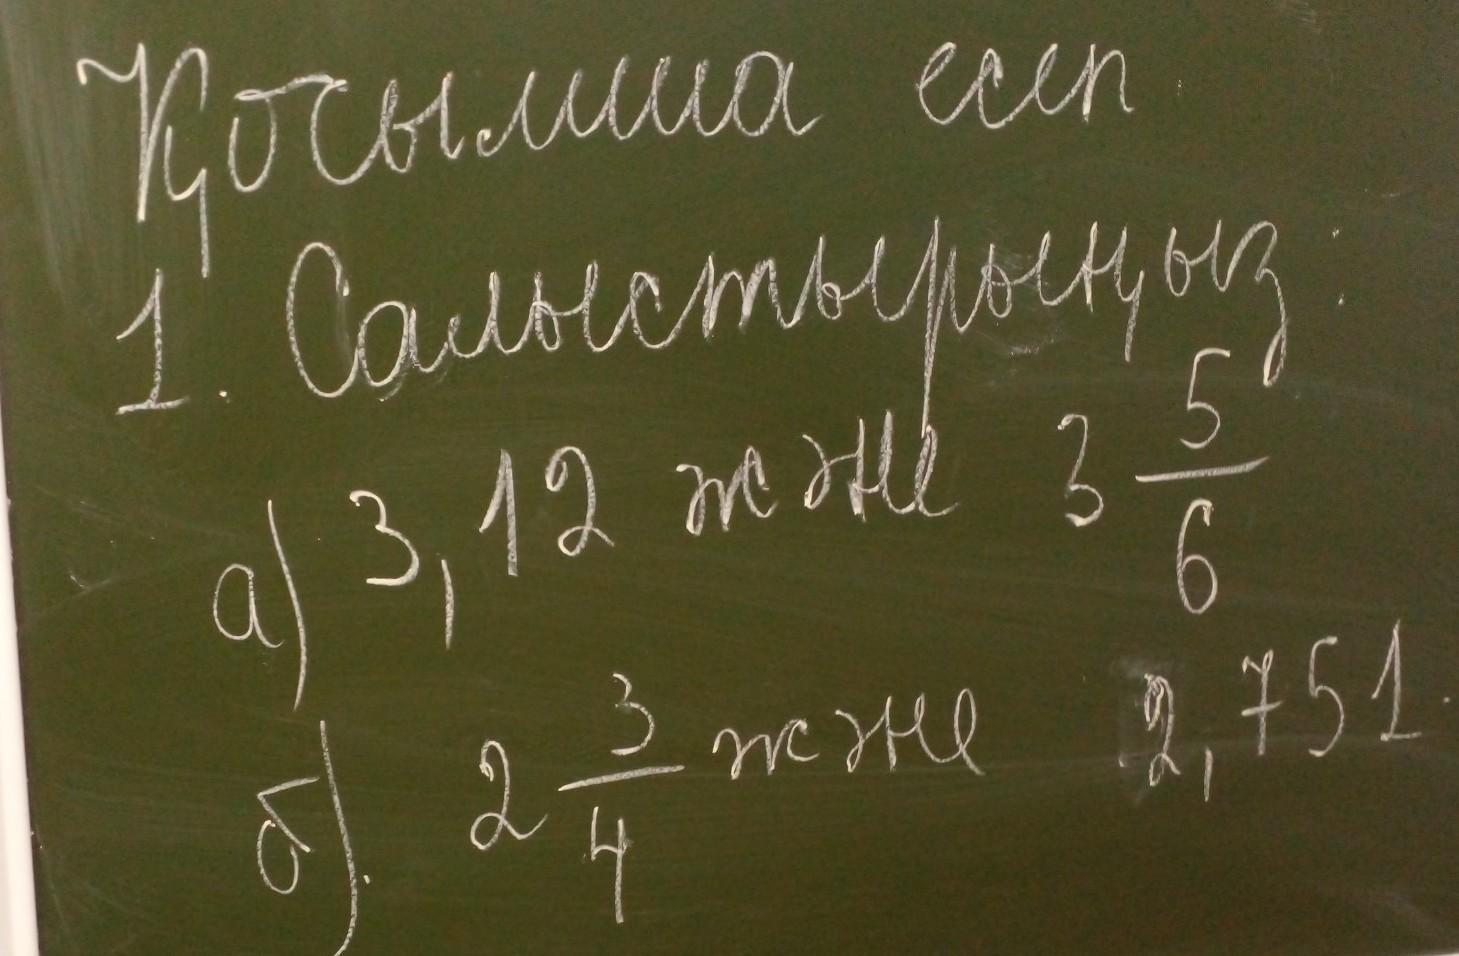 Қосымша есеп
1. Салыстырыңыз:
а) 3,12 және 3 5/6
б). 2 3/4 және 2,751.